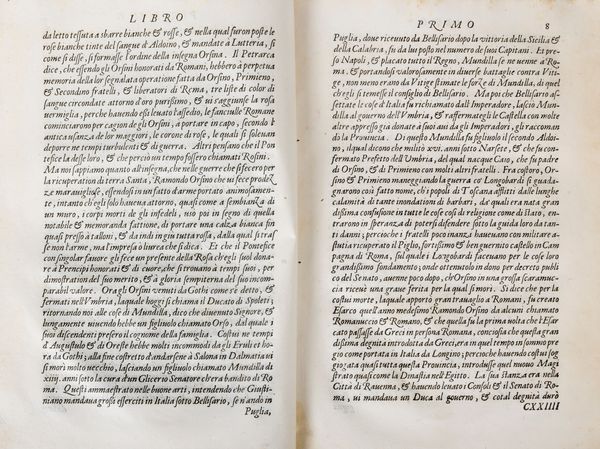 LIBRO
da letto tessuta a sbarre bianche & rosse, & nella qual furon poste le
rose bianche tinte del sangue d'Aldoino, & mandate a Lutteria, si
come si disse, si formasse l'ordine della insegna Orsina. Il Petrarca
dice, che essendo gli Orsini honorati da Romani, hebbero a perpetua
memoria della lor segnalata operatione fatta da Orsino, Primieno,
& Secondino fratelli, & liberatori di Roma, tre liste di color di
sangue circondate attorno d'oro purissimo, & vi s'aggiunse la rosa
vermiglia, perche hauendo essi leuato l'assedio, le fanciulle Romane
cominciarono per cagion de gli Orsini, a portare in capo, secondo l'
antica usanza de lor maggiori, le corone di rose, le quali si soleuan
deporre ne tempi turbulenti & di guerra. Altri pensano che il Pon
tefice la desse loro, & che perciò un tempo fossero chiamati Rosini.
Ma noi sappiamo quanto all'insegna, che nelle guerre che si fecero per
la ricuperation di terra Santa, Ramondo Orsino che vi fece prodez
ze marauigliose, essendosi in un fatto d'arme portato animosamen-
te, intanto ch'egli solo haueua attorno, quasi come a sembianza di
un muro, i corpi morti de gli infedeli, uso poi in segno di quella
notabile & memoranda fattione, di portare una calza bianca fin
quasi presso a talloni, & da indi in giu tutta rossa, dalla qual si tras-
se non l'arme, ma l'impresa o liurea che si dica. Et che il Pontefice
con singolar fauore gli fece un presente della Rosa ch'egli suol dona-
re a Prencipi honorati & di cuore, che si trouano à tempi suoi, per
dimostration del suo merito, & à gloria sempiterna del suo incom-
parabil valore. Ora gli Orsini venuti da Gothi come s'è detto, &
fermati nell'Vmbria, laquale hoggi si chiama il Ducato di Spoleti;
ritornando noi alle cose di Mundilla, dico che diuenuto Signore, &
lungamente viuendo hebbe un figliuolo chiamato Orso, dal quale i
suoi discendenti presero il cognome della famiglia. Costui ne tempi
d'Augustulo & di Oreste hebbe molti incommodi da gli Eruli et hora
da Gothi; alla fine costretto d'andarsene à Salona in Dalmatia vi
si morì molto vecchio, lasciando un figliuolo chiamato Mundilla di
xiiij. anni sotto la cura d'un Glicerio Senatore ch'era bandito di Ro
ma. Questi ammaestrato nelle buone arti, intendendo che Giusti-
niano mandaua grossi esserciti in Italia sotto Bellisario, se n'andò in
Puglia,
PRIMO
8
Puglia, doue riceuuto da Bellisario dopo la vittoria della Sicilia &
della Calabria, fu da lui posto nel numero de suoi Capitani. Et pre-
so Napoli, & placato tutto il Regno, Mundilla se ne uenne a Ro-
ma, & portandosi valorosamente in diuerse battaglie contra Viti-
ge, non meno erano da Vitige stimate le forze di Mundilla, di quel
che egli si temesse il consiglio di Bellisario. Ma poi che Bellisario as-
settate le cose d'Italia fu richiamato dall'Imperadore, lasciò Mun-
dilla al gouerno dell'Vmbria, & raffermategli le Castella con molte
altre appresso gia donate a suoi aui da gli Imperadori, gli raccoman
dò la Prouincia. Di questo Mundilla fu figliuolo il secondo Aldoi-
no, il qual dicono che militò xvi. anni sotto Narsete, & che fu con-
fermato Prefetto dell'Vmbria, del qual nacque Caio, che fu padre
di Orsino, & di Primieno con molti altri fratelli. Fra costoro, Orsi-
no & Primieno maneggiando la guerra co' Longobardi si guada-
gnarono così fatto nome, ch'i popoli di Toscana afflitti dalle lunghe
calamità di tante inondationi di barbari, da' quali era nata gran
dissima confusione in tutte le cose così di religione come di stato, en-
trarono in speranza di potersi difendere sotto la guida loro da tan-
ti danni; percioche i fratelli poco innanzi haueuano con militare a-
stutia ricuperato il Piglio, fortissimo & ben guernito castello in Cam
pagna di Roma, sul quale i Longobardi faceuano per le cose loro
grandissimo fondamento; onde ottenutolo in dono per decreto publi
co del Senato, auenne poco dopo, ch'Orsino in una grossa scaramuc-
cia riceuè una graue ferita per la qual si morì. Si dice che per la
costui morte, laquale apportò gran trauaglio a Romani, fu creato
Esarco quell'anno medesimo Ramondo Orsino da alcuni chiamato
Romanuccio & Romano, & che quella fu la prima volta che l'Esarco
passasse da Greci in persona Romana, conciosia che questa gran
dissima degnità introdotta da Greci, era in quel tempo in sommo pre
gio come portata in Italia da Longino; percioche hauendo costui sog
giogata quasi tutta questa Prouincia, introdusse quel nuouo Magi
strato, quasi come la Dinastia nell'Egitto. La sua stanza era nella
Città di Rauenna, & hauendo leuato i Consoli & il Senato di Ro-
ma, ui mandaua un Duca al gouerno, & cotal degnità durò
CXXIIII